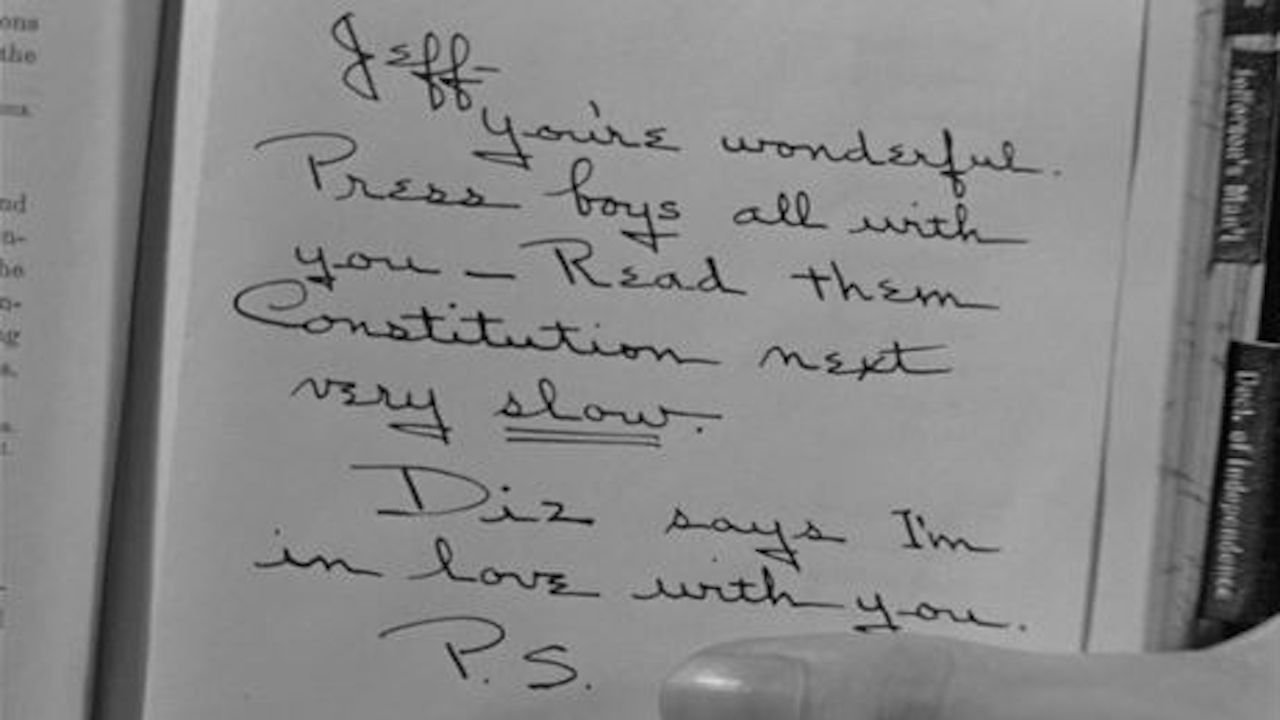 ons
the
Jeff—
you're wonderful.
Press boys all with
you — Read them
Constitution next
very slow.
Diz says I'm
in love with you.
P.S.
nd
n-
he
n-
ng
s.
Jefferson's Man'l
Decl. of Independence